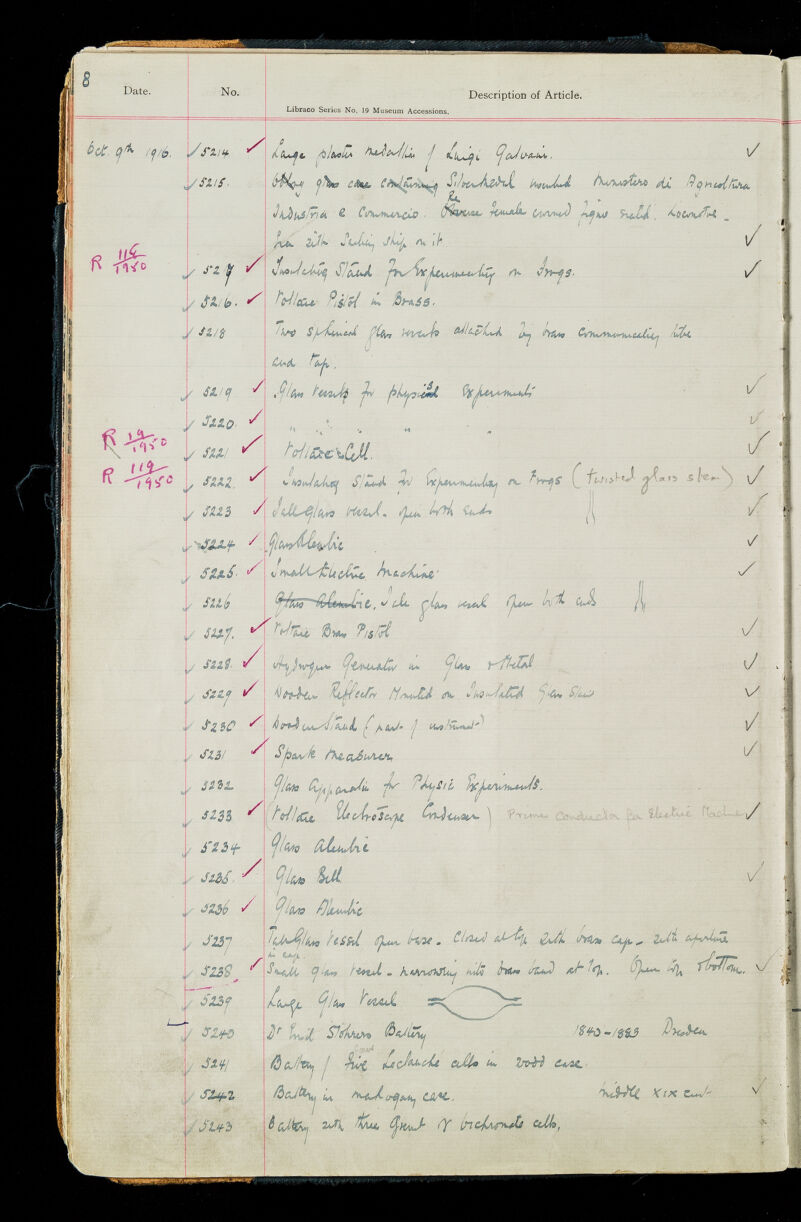 8
Date. No. Description of Article.
Libraco Series No. 19 Museum Accessions.
Oct. 9th 1916. ✓5214 ✓ Large plaster medallion of Luigi Galvani. ✓
✓5215. Oblong glass case containing Silver medal inscribed Ministero di Agricoltura
Industria e Commercio. Reverse female crowned figure seated. Locomotive -
Sea with Sailing ship on it. ✓
R 119/1950 ✓ 5217 ✓ Insulating Stand for Experimenting on Frogs. ✓
✓ 5216. ✓ Voltaic Pistol in Brass.
✓ 5218 Two spherical glass vessels attached by brass communicating tube
and tap.
✓ 5219 ✓ Glass Vessels for physics Experiments ✓
✓ 5220 ✓ " " " " ✓
R 19/1950 ✓ 5221 ✓ Voltaic Cell. ✓
R 119/1950 ✓ 5222. ✓ Insulating Stand for Experimenting on Frogs (twisted glass stem) ✓
✓ 5223 ✓ Tall Glass vessel - open both ends ✓
✓ 5224 ✓ Glass Alembic ✓
✓ 5225. ✓ Small Electric Machine ✓
✓ 5226 Glass Alembic. Tall glass vessel open both ends
✓ 5227. ✓ Voltaic Brass Pistol ✓
✓ 5228. ✓ Hydrogen Generator in Glass & Metal ✓
✓ 5229 ✓ Wooden Reflector Mounted on Insulated Glass Stem ✓
✓ 5230 ✓ Wooden Stand (part of instrument) ✓
✓ 5231 ✓ Spark Measurer ✓
✓ 5232 Glass Apparatus for Physic Experiments.
✓ 5233 ✓ (Voltaic Electroscope Condenser) Prime Conductor for Electric Machine ✓
✓ 5234 Glass Alembic
✓ 5235. ✓ Glass Bell ✓
✓ 5236 ✓ Glass Alembic
✓ 5237 Tall Glass Vessel open base - Closed at top with brass cap - with aperture
in cap.
✓ 5238 ✓ Small glass vessel - narrowing into brass band at top. Open top & bottom. ✓
✓ 5239 Large Glass Vessel
✓ 5240 Dr Emil Stöhrers Battery 1843-1883 Dresden
✓ 5241 Battery of five Leclanché cells in wood case.
✓ 5242 Battery in mahogany case. Middle XIX cent ✓
✓ 5243 Battery with three Grenet or bichromate cells.